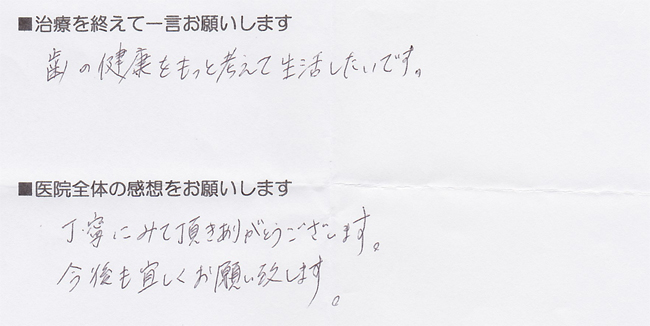 ■治療を終えて一言お願いします
歯の健康をもっと考えて生活したいです。
■医院全体の感想をお願いします
丁寧にみて頂きありがとうございます。
今後も宜しくお願い致します。